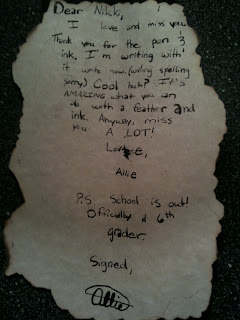 Dear Nikki,
I love and miss you.
Thank you for the pen &
ink. I'm writing with
it write now. (wring spelling
sorry) Cool huh? It's
AMAZING what you can
do with a feather and
ink. Anyway, miss
you A LOT!
Love,
Allie
P.S. School is out!
Officially a 6th
grader.
Signed,
Allie